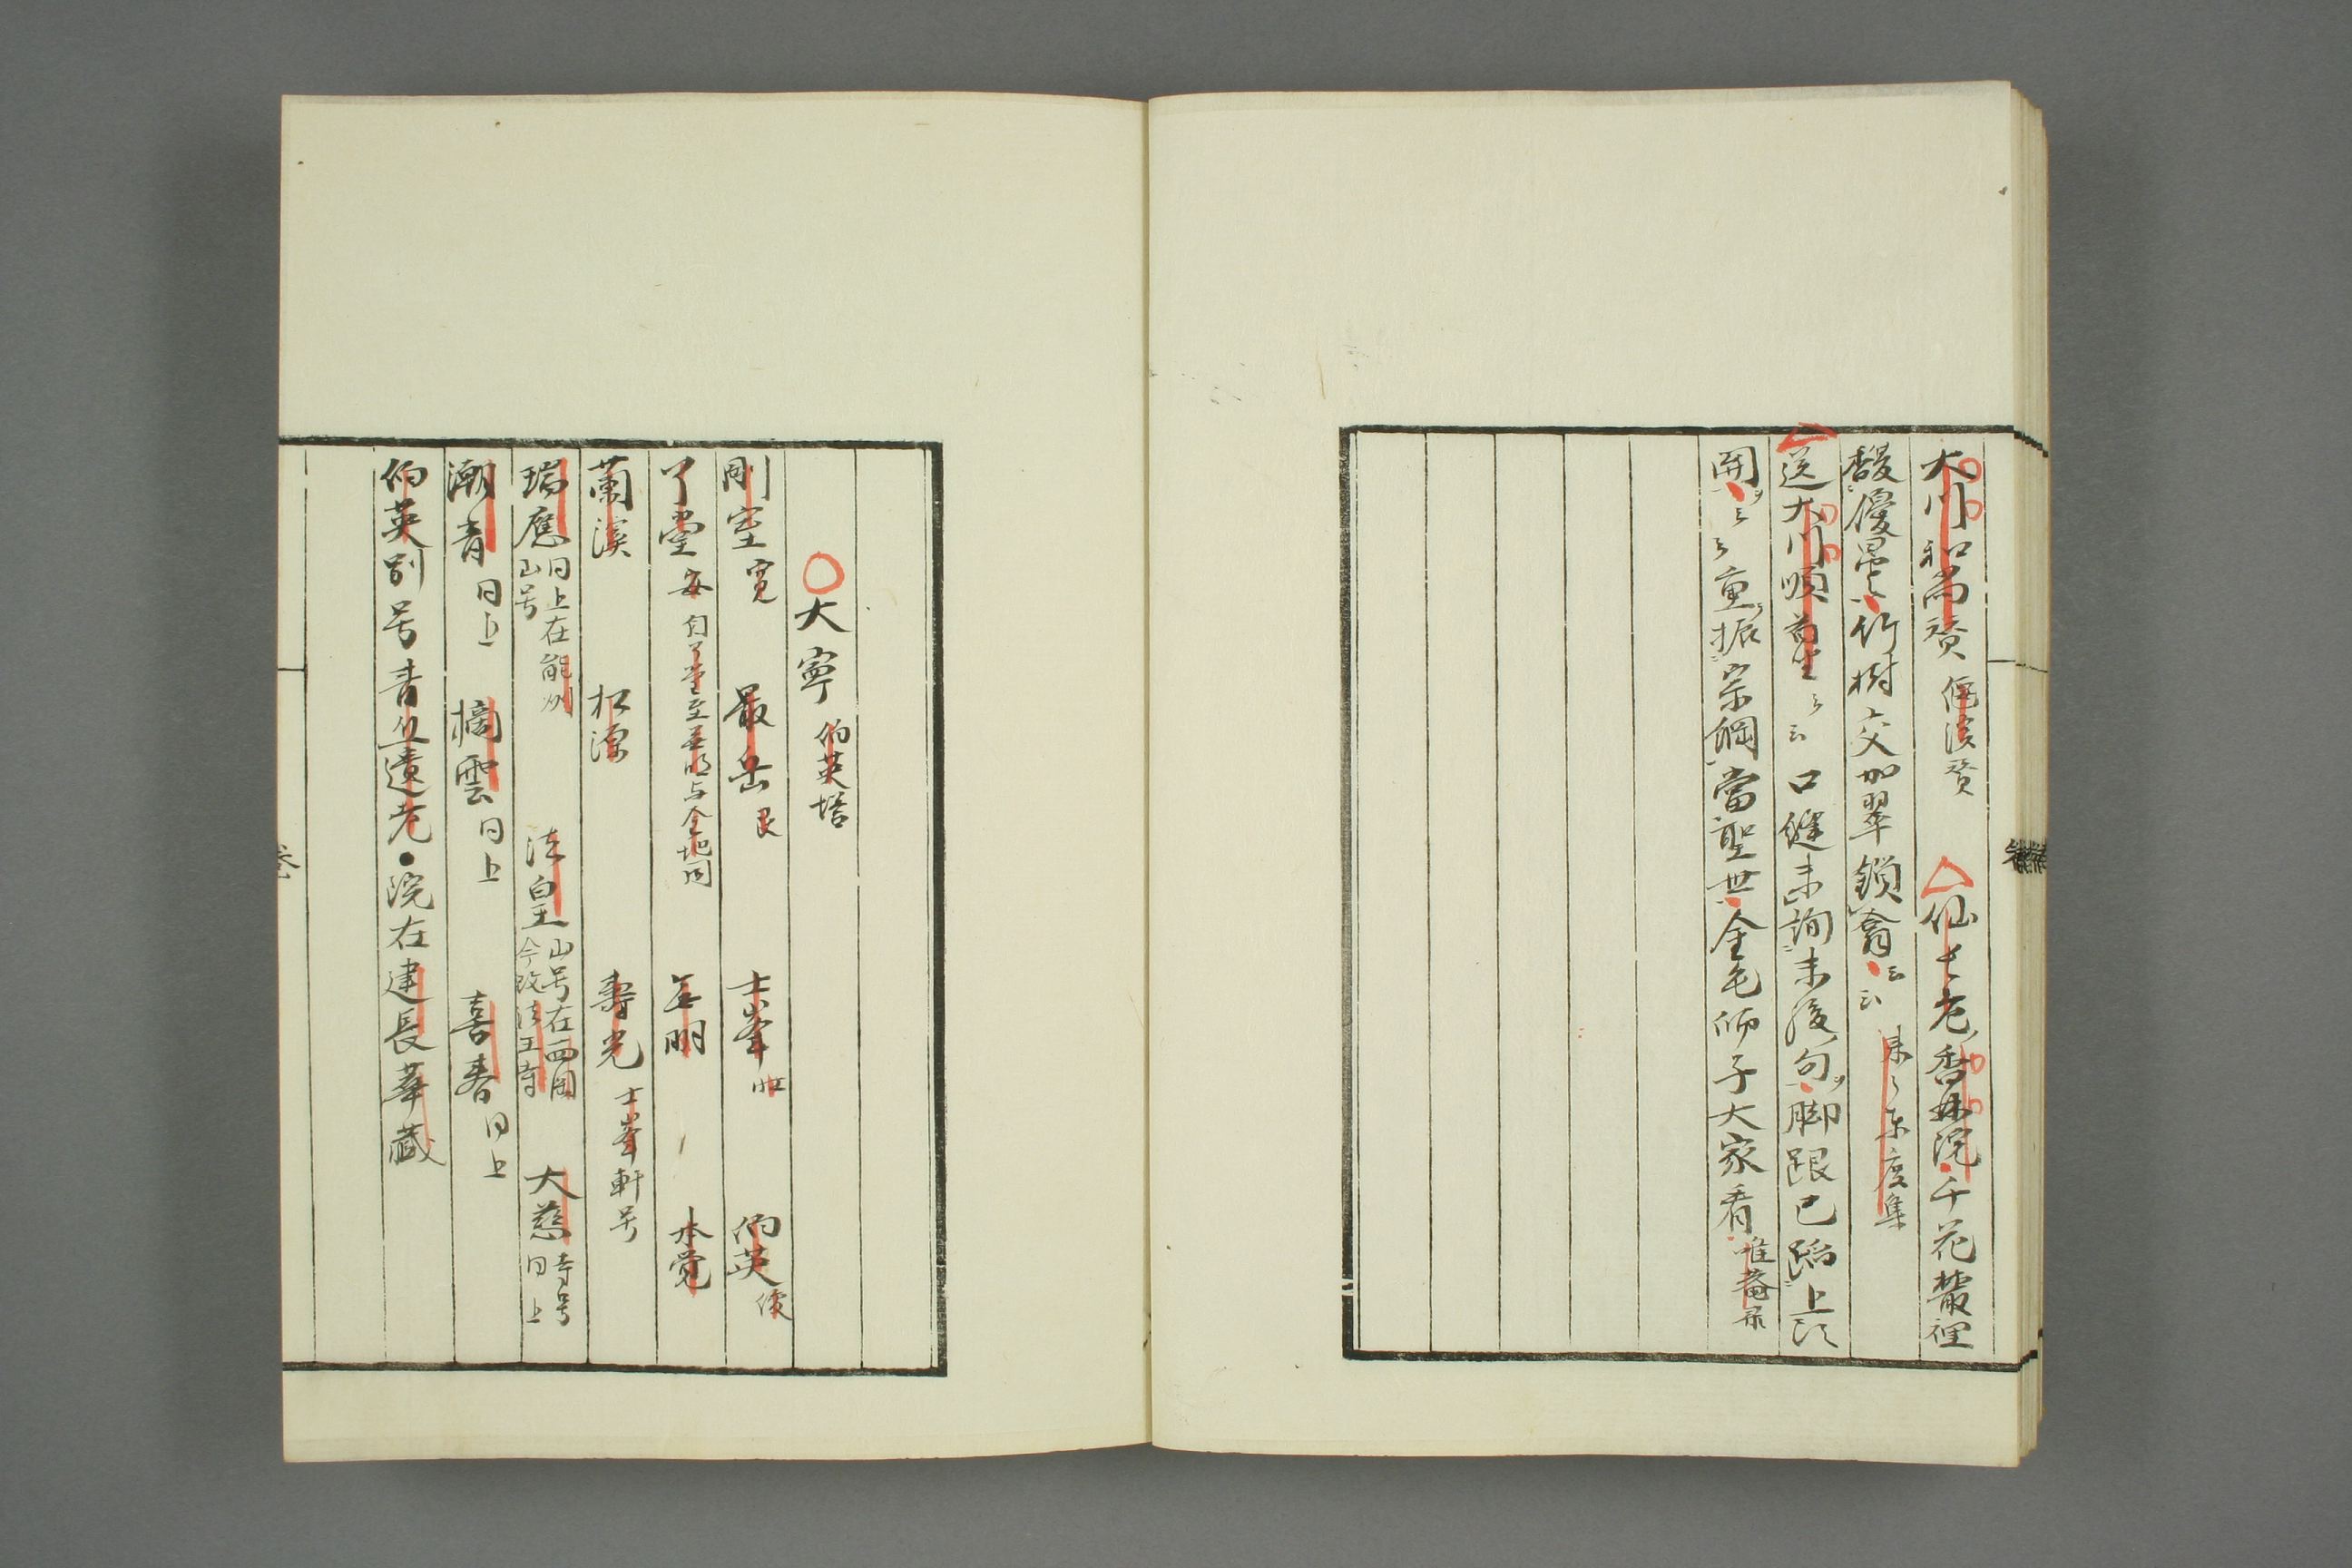 大川和尚賛 偃溪賛 △仙士老香林院千花叢裡
馥優曇竹樹交加翠鎖禽云云 東度集
△送大川順首坐云 口縫未詢末後句脚跟已蹈上頭
関云云重振宗綱當聖世全毛師子大家看 唯菴录
○大寧 伯英塔
剛室寛 最岳良 士峯 伯英俊
了堂安 自了堂至无明与金地同 無明 本覚
蘭溪 松源 壽光 士峯軒号
瑞應 同上在能州山号 法皇 山号在西国今改法王寺 大慈 寺号同上
潮青 同上 摘雲 同上 喜春 同上
伯英別号青丘遺老●院在建長華蔵